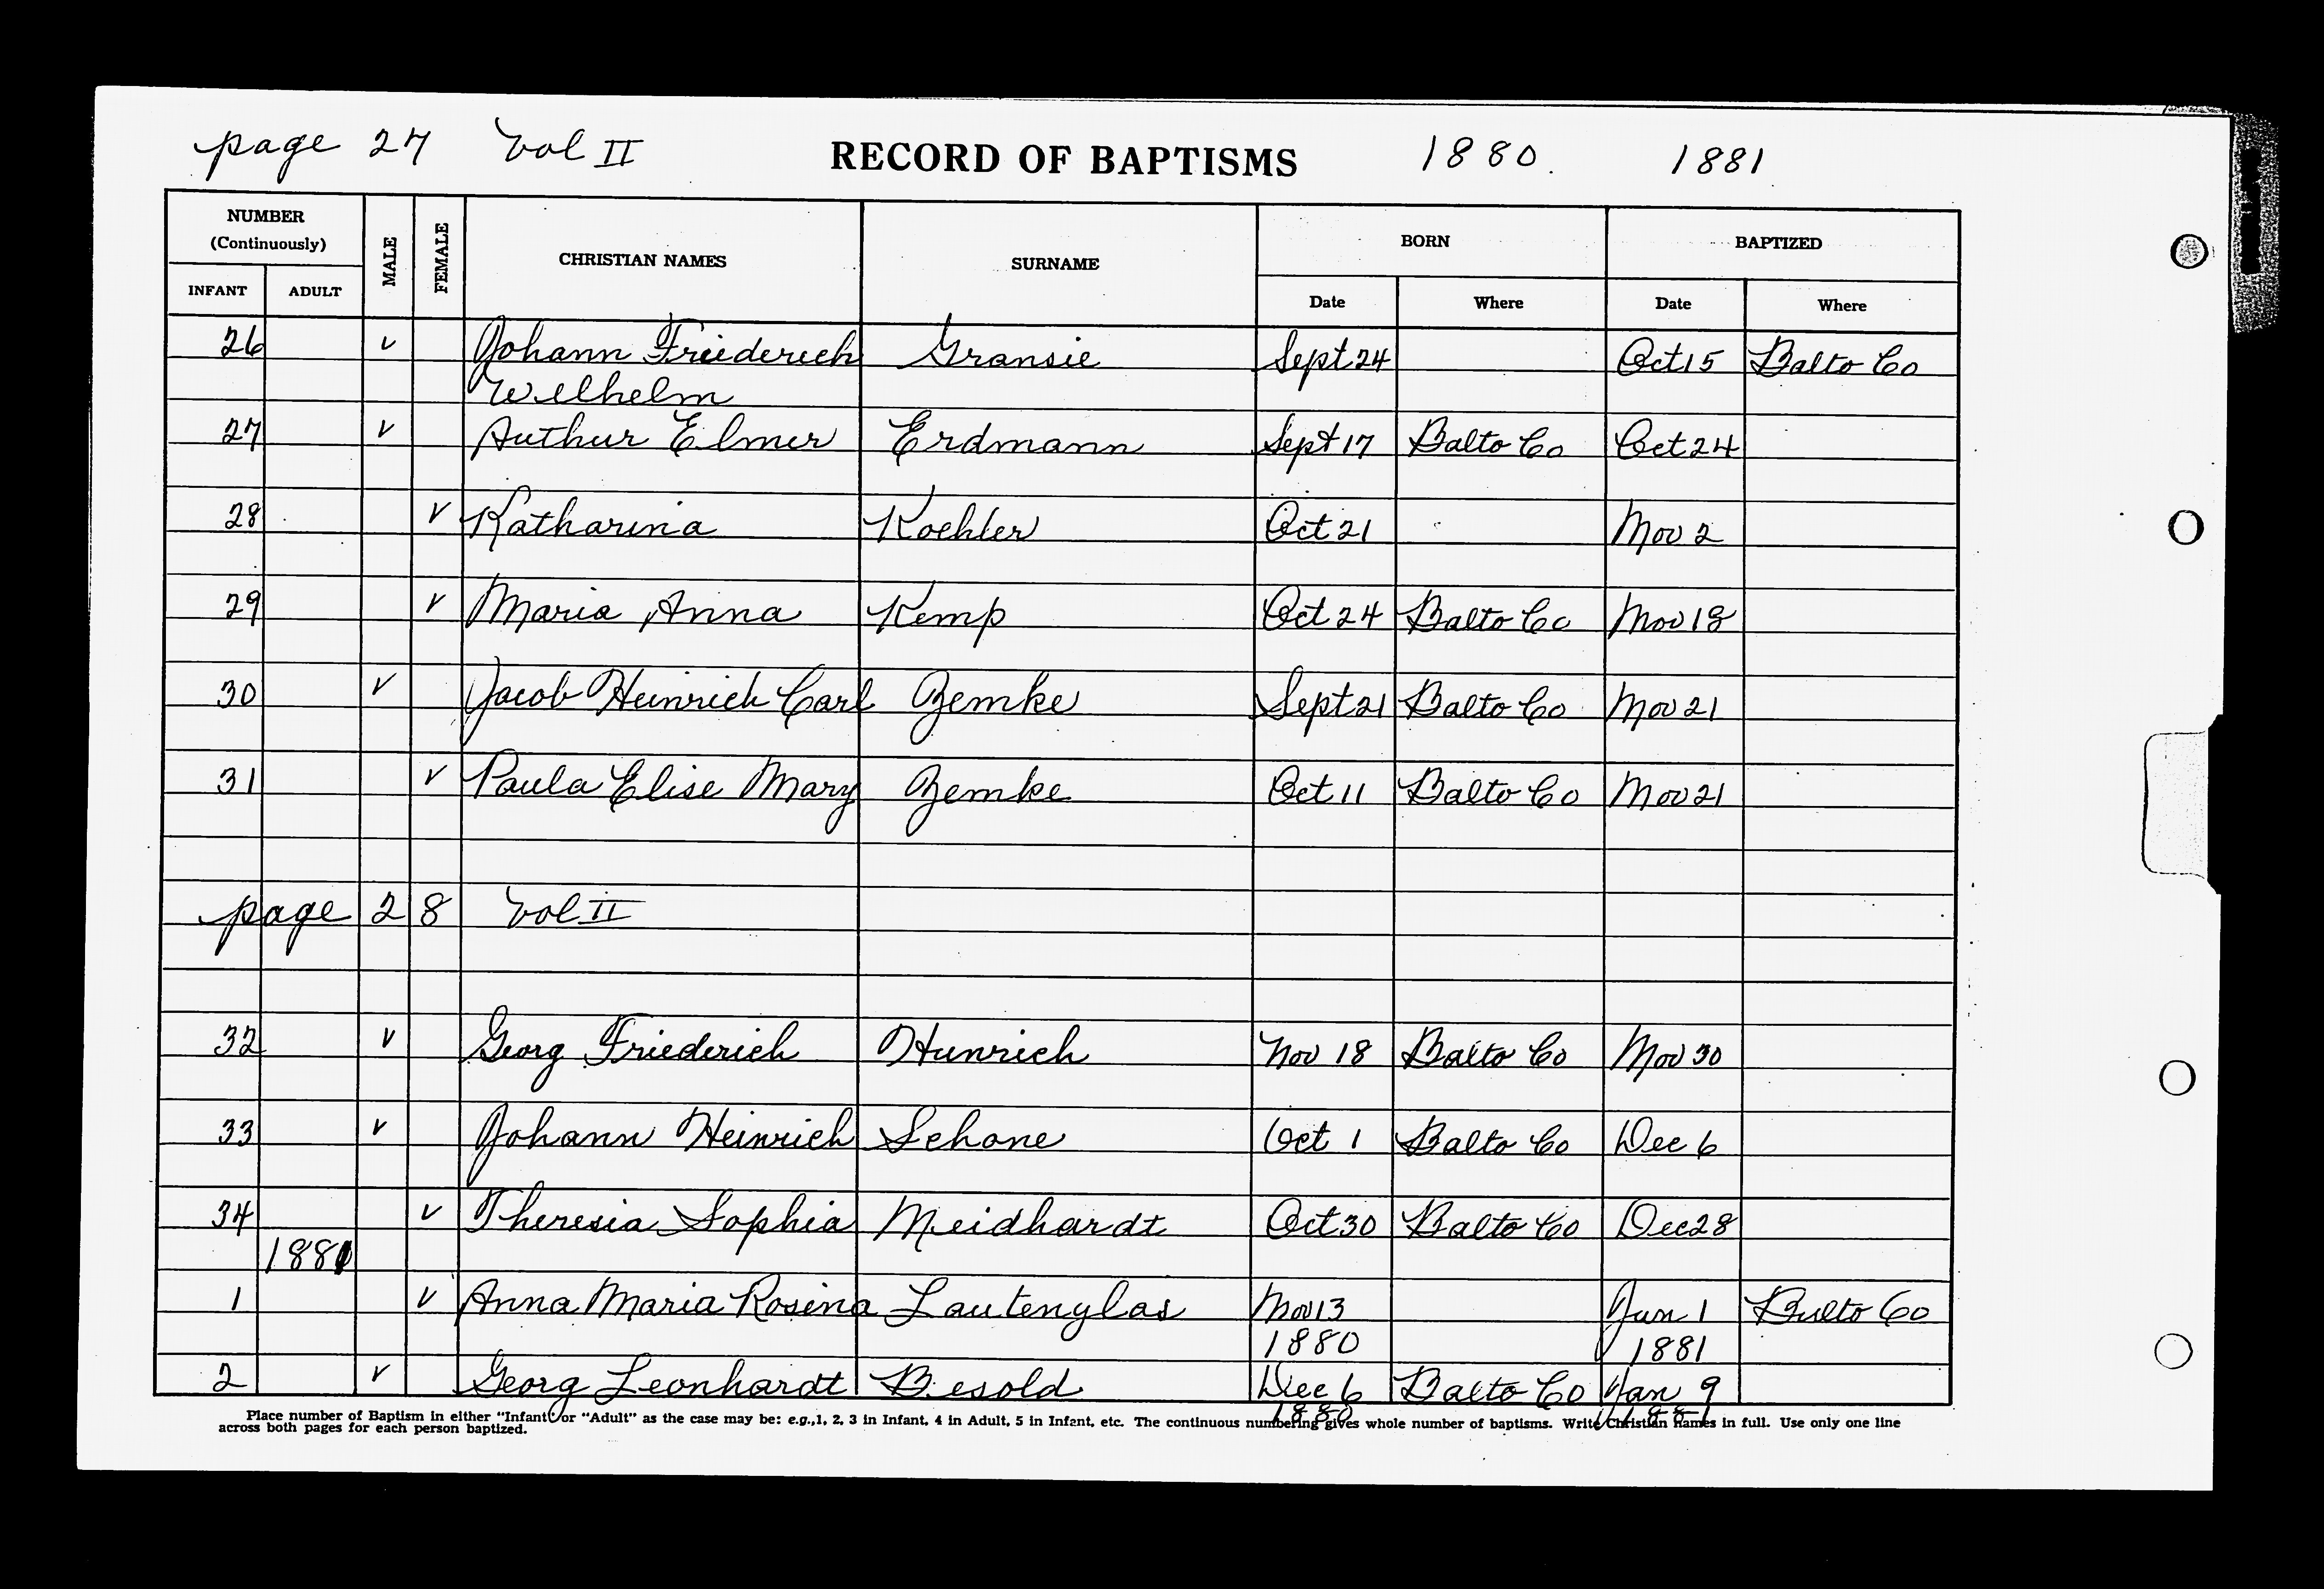 page 27 Vol II RECORD OF BAPTISMS 1880. 1881
NUMBER (Continuously) MALE FEMALE CHRISTIAN NAMES SURNAME BORN BAPTIZED
INFANT ADULT Date Where Date Where
26 v Johann Friederich Gransie Sept 24 Oct 15 Balto Co
Wilhelm
27 v Authur Elmer Erdmann Sept 17 Balto Co Oct 24
28 v Katharina Koehler Oct 21 Nov 2
29 v Maria Anna Kemp Oct 24 Balto Co Nov 18
30 v Jacob Heinrich Carl Zemke Sept 21 Balto Co Nov 21
31 v Paula Elise Mary Zemke Oct 11 Balto Co Nov 21
page 28 Vol II
32 v Georg Friederich Hunrich Nov 18 Balto Co Nov 30
33 v Johann Heinrich Schone Oct 1 Balto Co Dec 6
34 v Theresia Sophia Meidhardt Oct 30 Balto Co Dec 28
1881
1 v Anna Maria Rosina Lautenylas Nov 13 Jan 1 Balto Co
1880 1881
2 v Georg Leonhardt Besold Dec 6 Balto Co Jan 9
1880 1881
Place number of Baptism in either "Infant" or "Adult" as the case may be: e.g., 1, 2, 3 in Infant, 4 in Adult, 5 in Infant, etc. The continuous numbering gives whole number of baptisms. Write Christian names in full. Use only one line
across both pages for each person baptized.